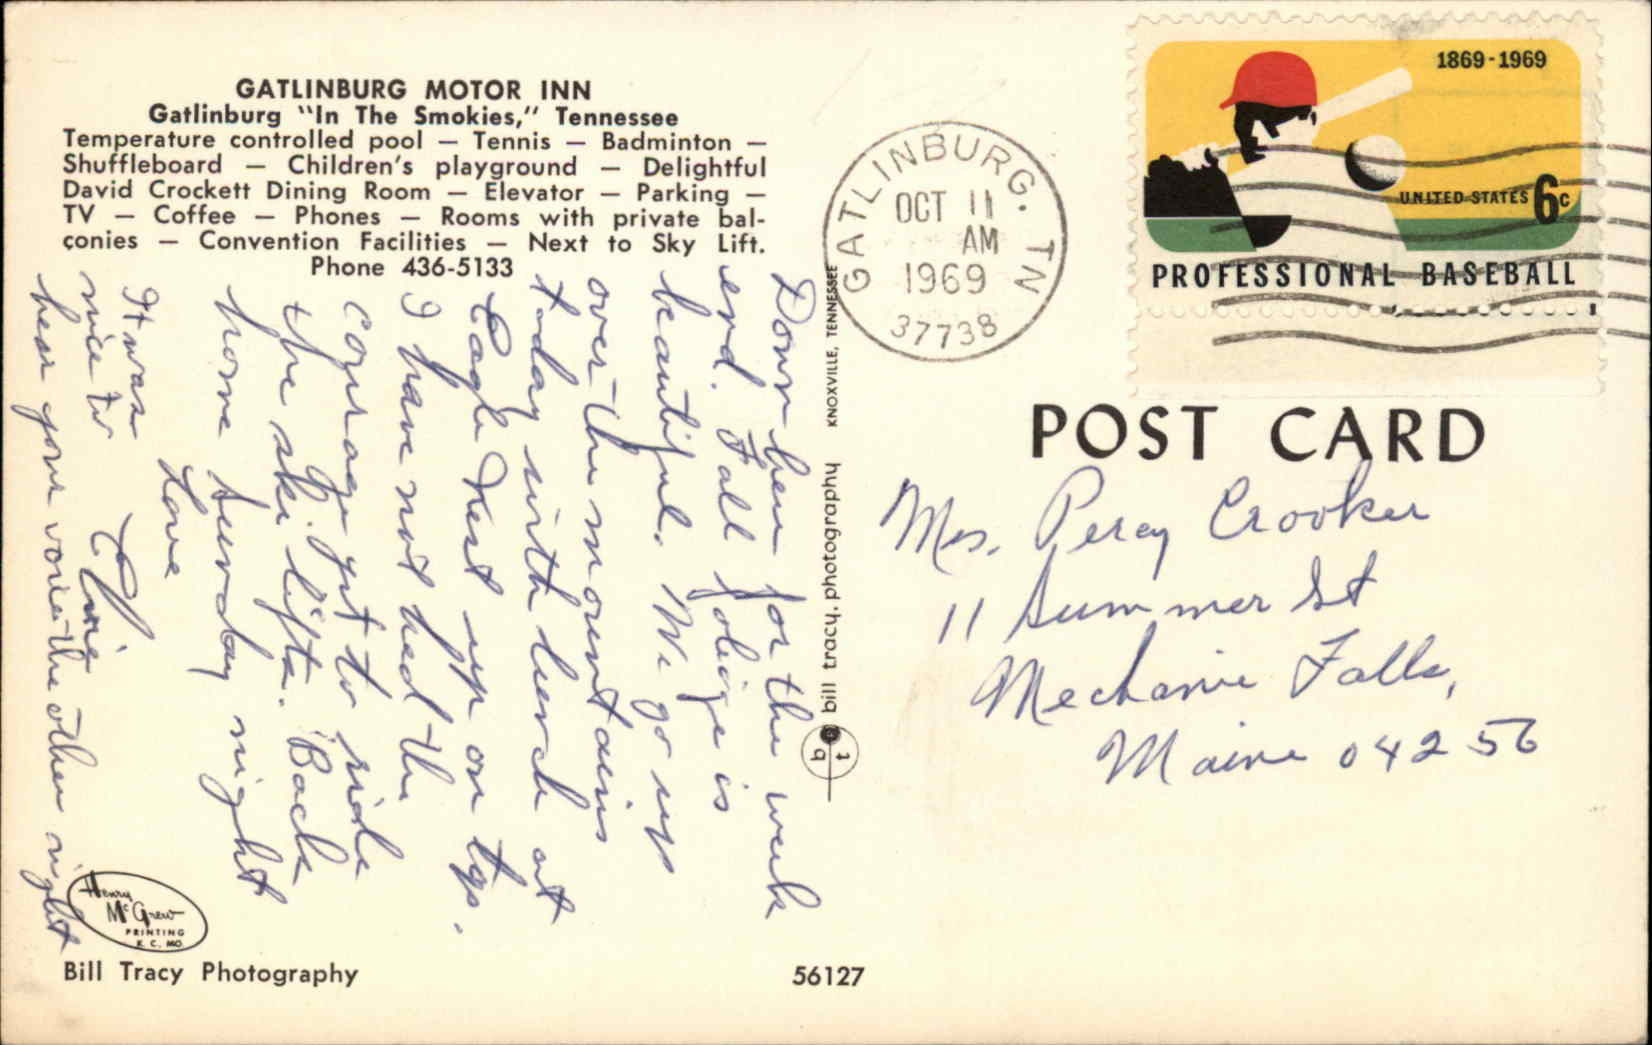 GATLINBURG MOTOR INN
Gatlinburg "In The Smokies," Tennessee
Temperature controlled pool — Tennis — Badminton —
Shuffleboard — Children's playground — Delightful
David Crockett Dining Room — Elevator — Parking —
TV — Coffee — Phones — Rooms with private bal-
conies — Convention Facilities — Next to Sky Lift.
Phone 436-5133
Down here for the week
end. Fall foliage is
beautiful. We go up
over the mountains
today with lunch at
Eagle Nest up on top.
I have not had the
courage yet to ride
the ski lifts. Back
home Sunday night
Love
It was
nice to
hear your voice the other night
Henry
McGrew
PRINTING
K. C., MO.
Bill Tracy Photography
56127
bill tracy. photography KNOXVILLE, TENNESSEE
b t
GATLINBURG. TN
OCT 11
AM
1969
37738
1869-1969
UNITED STATES 6c
PROFESSIONAL BASEBALL
POST CARD
Mrs. Percy Crooker
11 Summer St
Mechanic Falls,
Maine 04256